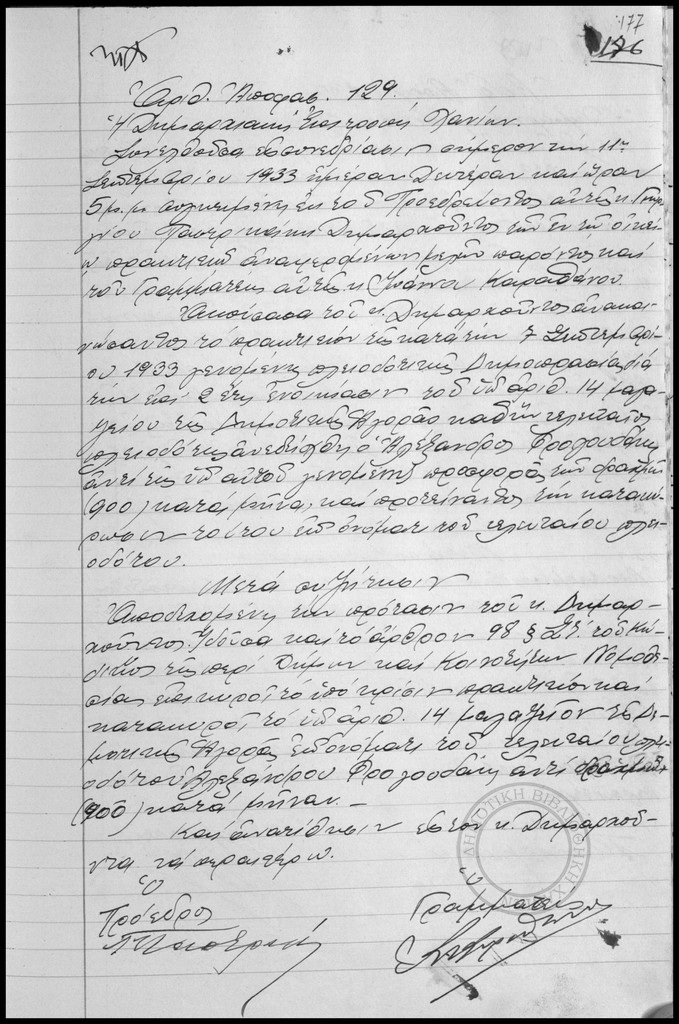 177
176
Ἀριθ. Ἀποφας. 129.
Ἡ Δημαρχιακή Ἐπιτροπή Χανίων.
Συνελθοῦσα εἰς συνεδρίασιν σήμερον την 11ην
Σεπτεμβρίου 1933 ἡμέραν Δευτέραν και ὥραν
5 μ.μ. συγκειμένη ἐκ τοῦ Προεδρεύοντος αὐτῆς κ. Γεωρ
γίου Δημαρχοῦντος των ἐν τῷ οἰκεί
ῳ πρακτικῷ ἀναφερομένων μελῶν παρόντος και
τοῦ Γραμματέως αὐτῆς κ. Ἰωάννου Καραθάνου.
Ἀκούσασα τοῦ κ. Δημαρχοῦντος ἀνακοι-
νώσαντος το πρακτικόν της κατά την 7 Σεπτεμβρί-
ου 1933 γενομένης πλειοδοτικῆς Δημοπρασίας διά
την ἐπί 2 ἔτη ἐνοικίασιν τοῦ ὑπ' ἀριθ. 14 μαγα-
ζείου τῆς Δημοτικῆς Ἀγορᾶς καθ' ἥν τελευταῖος
πλειοδότης ἀνεδείχθη ὁ Ἀλέξανδρος Φραγουδάκης
ἀντί τῆς ὑπ' αὐτοῦ γενομένης προσφορᾶς των δραχμῶν
(900) κατά μῆνα, και προτείναντος την κατακύ-
ρωσιν τούτου ἐπ' ὀνόματι τοῦ τελευταίου πλει-
οδότου.
Μετά συζήτησιν
Ἀποδεχομένη την πρότασιν τοῦ κ. Δημαρ-
χοῦντος. Ἰδοῦσα και το ἄρθρον 98 § τοῦ Κώ-
δικος της περί Δήμων και Κοινοτήτων Νομοθε-
σίας ἐπικυροῖ το ὑπό κρίσιν πρακτικόν και
κατακυροῖ το ὑπ' ἀριθ. 14 μαγαζεῖον της Δη-
μοτικῆς Ἀγορᾶς ἐπ' ὀνόματι τοῦ τελευταίου πλει-
οδότου Ἀλεξάνδρου Φραγουδάκη ἀντί δραχμῶν
(900) κατά μῆναν.-
Και ἀνατίθησιν εἰς τον κ. Δημαρχοῦ-
ντα τα περαιτέρω.
Ὁ Ὁ
Πρόεδρος Γραμματεύς
ΔΗΜΟΤΙΚΗ ΒΙΒΛΙΟΘΗΚΗ ΧΑΝΙΩΝ